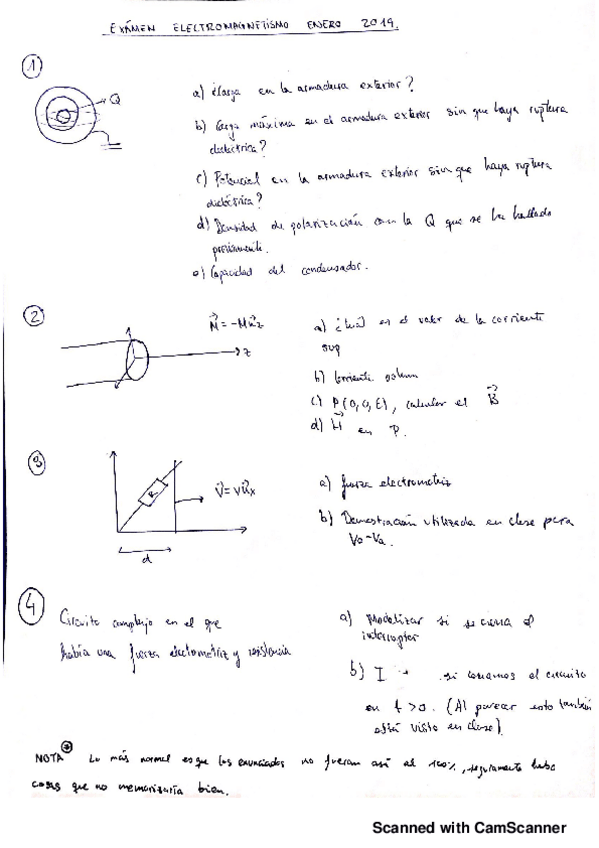 EXÁMEN ELECTROMAGNETISMO ENERO 2019.
1
Q
a) ¿Carga en la armadura exterior?
b) Carga máxima en el armadura exterior sin que haya ruptura
dieléctrica?
c) Potencial en la armadura exterior sin que haya ruptura
dieléctrica?
d) Densidad de polarización con la Q que se ha hallado
previamente.
e) Capacidad del condensador.
2
M = -M uz
z
a) ¿Cuál es el valor de la corriente
sup
b) Corriente volum
c) P(0,0,E), calcular el B
d) H en P.
3
R
V = V ux
d
a) fuerza electromotriz
b) Demostración utilizada en clase para
Vb-Va.
4
Circuito complejo en el que
había una fuerza electromotriz y resistencia
a) Modelizar si se cierra el
interruptor
b) I si cerramos el circuito
en t>0. (Al parecer esto también
está visto en clase).
NOTA Lo más normal es que los enunciados no fueran así al 100%, seguramente hubo
cosas que no memorizaría bien.
Scanned with CamScanner